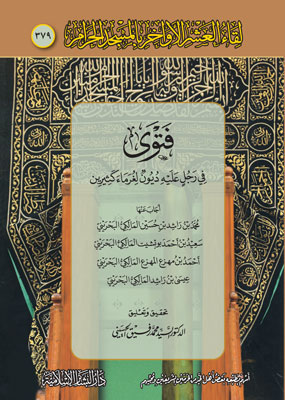 لقاء العشر الأواخر بالمسجد الحرام
٣٧٩
فتوى
في رجل عليه ديون لغرماء كثيرين
أجاب عنها
محمد بن راشد بن حسين المالكي البحريني
سعيد بن أحمد بوقشت المالكي البحريني
أحمد بن مهزع المهزع المالكي البحريني
عيسى بن راشد المالكي البحريني
تحقيق وتعليق
الدكتور السيد محمد رفيق الحسيني
أسهم بطبعه بعض أهل الخير من الحرمين الشريفين ومحبيهم
دار البشائر الإسلامية